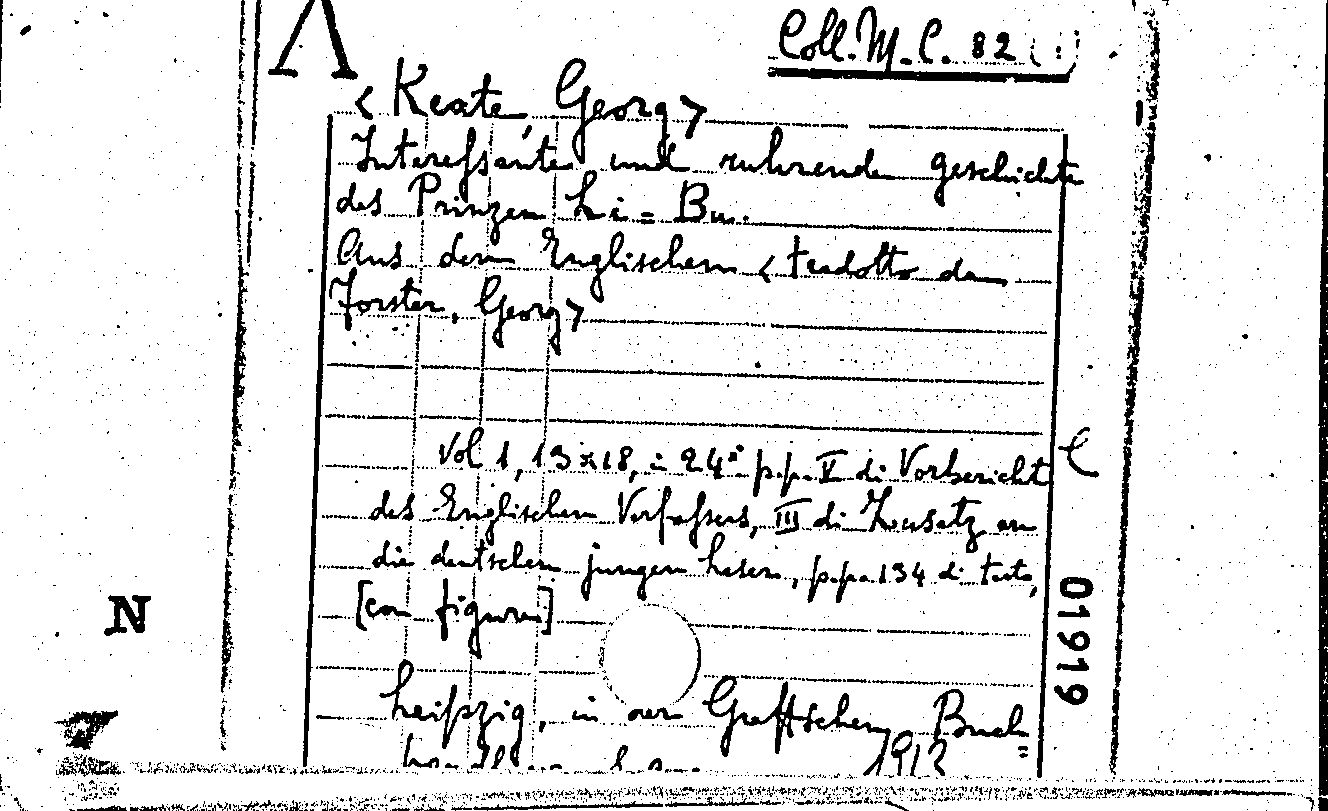 Coll. M. C. 82
< Keate, Georg >
Interessante und ruhrende geschichte
des Prinzen Li = Bu.
Aus dem Englischen < tradotto da
Forster, Georg >
Vol 1, 13 x 18, in 24° pp. V di Vorbericht
des Englischen Verfassers, III di Zusatz an
die deutschen jungen Leser, pp. 134 di testo,
[con figure]
N
01919
Leipzig, in der Graffschen Buch
=